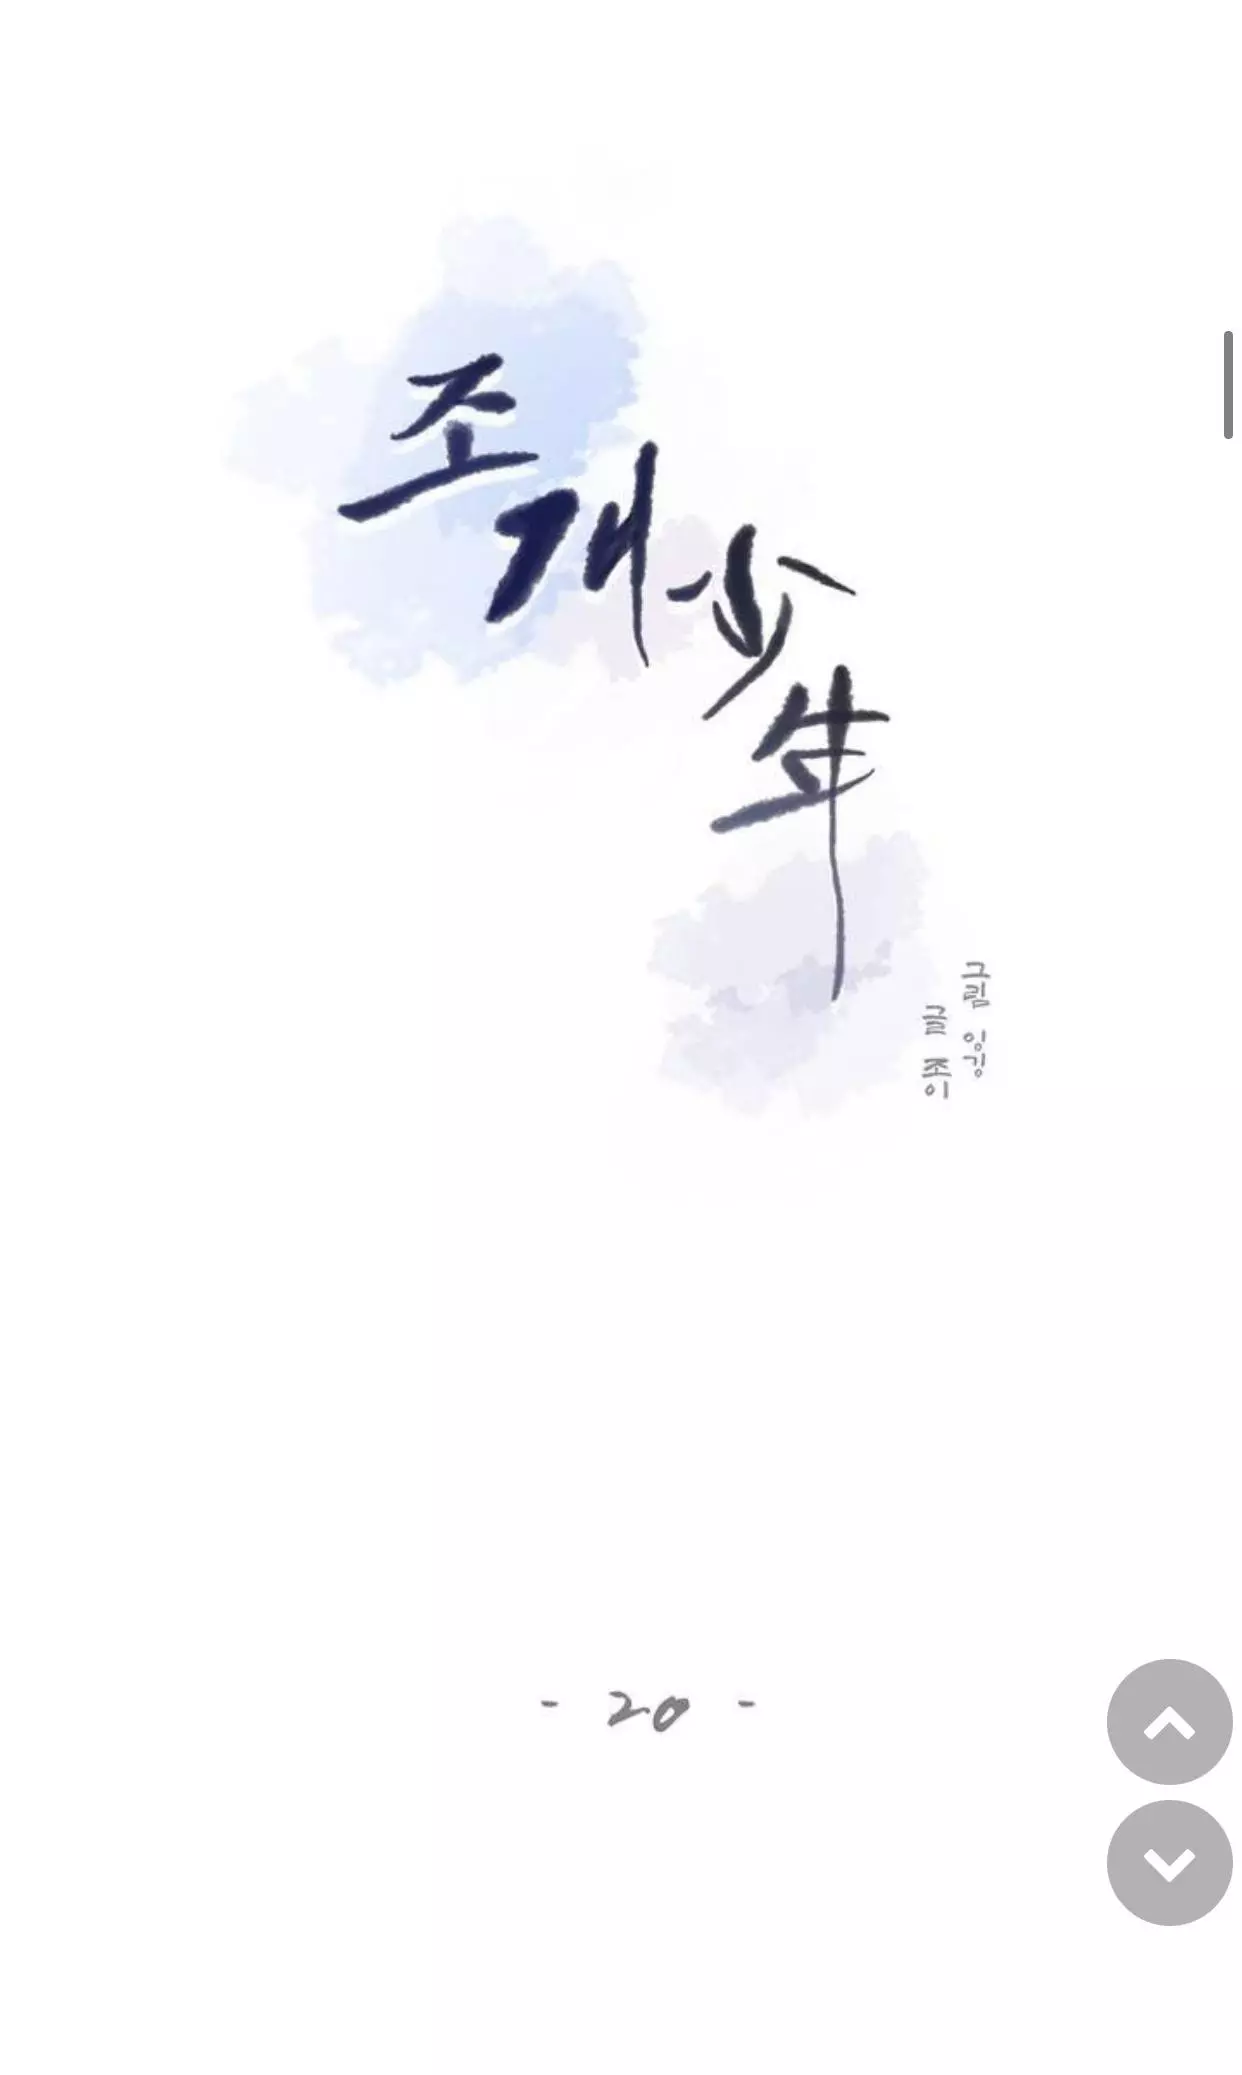 조개少年
그림 잉깅
글 조이
- 20 -